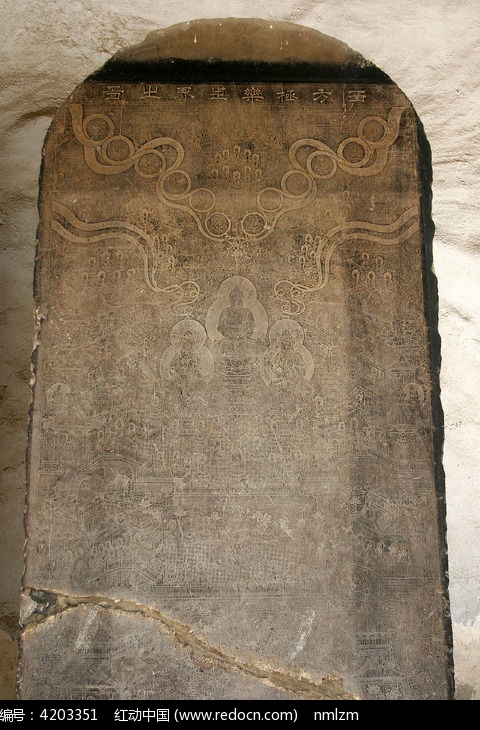 西方極樂世界之圖
编号：4203351 红动中国 (www.redocn.com) nmlzm